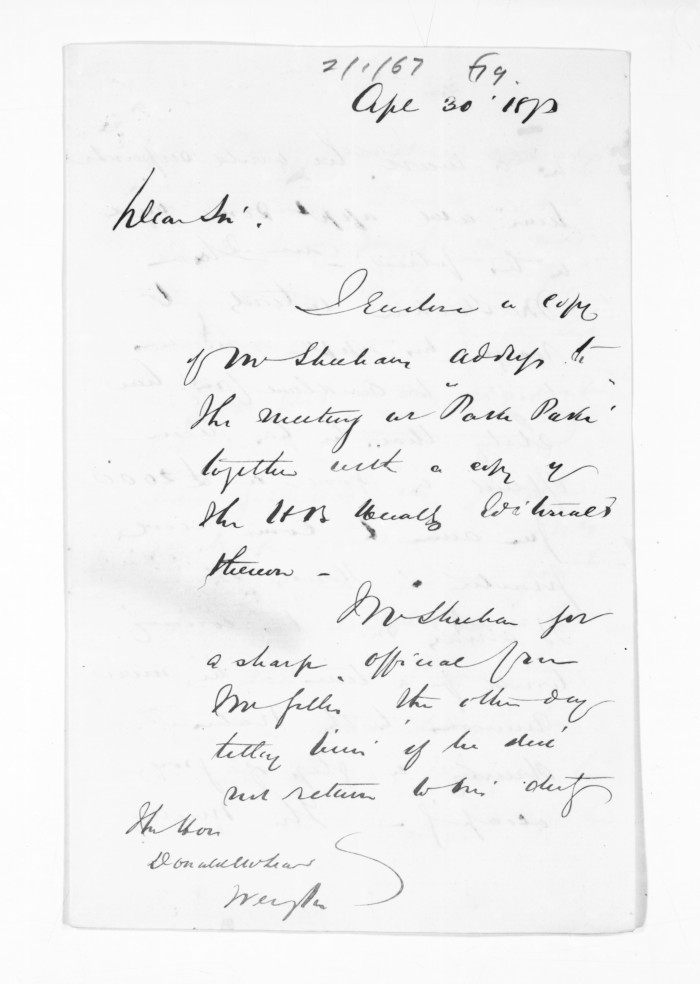 2/1/67 F19.
Apl 30 1873
Dear Sir,
I Enclose a copy
of Mr Sheehans address to
the meeting at "Paki Paki"
together with a copy of
the HB Heralds Editorials
thereon –
Mr Sheehan got
a sharp official from
Mr Gillis the other day
telling him if he did
not return to his duty
The Hon
Donald McLean